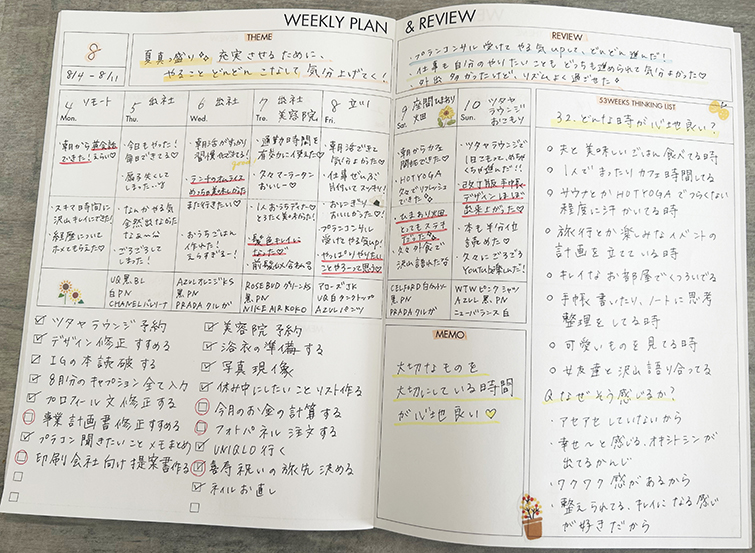 WEEKLY PLAN
& REVIEW
8
8/4 - 8/11
THEME
夏真っ盛り 充実させるために、
やること どんどん こなして 気分上げてく!
REVIEW
・プランコンサル 受けて やる気upして、どんどん進んだ!
・仕事も自分のやりたいことも どっちも進められて気分よかった♡
・外出 多かったけど、リズムよく過ごせた♡
4 リモート
Mon.
・朝から英会話
できた!えらい♡
・スキマ時間に
沢山キレイにできた!
・経度について
ホメてもらえた♡
5 出社
Thu.
・今日もやった!
毎日できてる♡
・なんかやる気
全然出なかった
なぁ〜
・ごろごろして
しまった!
UQ黒BL
白PN
CHANELバレリーナ
6 出社
Wed.
・朝活がすっかり
習慣化できてる!
・ランチのオムライス
めっちゃ美味しかった
また行きたい♡
・おうちごはん
作れた!
えらすぎる〜!
AzULオレンジKS
黒PN
PRADAクルガ
7 出社
美容院
Tre.
・通勤時間を
有効的に使えた♡
・久々マーラータン
おいしー♡
・髪色キレイに
なった♡
ROSE BUD グリーンKS
黒PN
NICE AIR KOKO
8
Fri.
・朝活できて
気分よかった♡
・仕事ぜんぶ
片付いてスッキリ!
・おにぎり
おいしかった!
プランコンサル
受けてやる気UP!
やっぱりやりたい
ことやろーって思う♡
アローズJK
UQ白タンクトップ
AzULパンツ
9 座間ひまわり
火田
Sat.
・朝からカな
・HOTYOGA
久々でリフレッシュ
できた♡
・ひまわり火田
とってもステキ
だった♡
・久々外食で
沢山語れた♡
CELFORD白カットソー
黒PN
PRADAクルガ
10 ツタヤ
ラウンジで
おこもり
Sun.
・ツタヤラウンジで
1日こもって、めちゃ
くちゃ進んだ!!
・改訂版手帳
デザインほぼほぼ
出来上がった♡
・本も半分位
読めた♡
・久々にごきげん
YouTube楽しんだ!
WTWピンクシャツ
AzULL黒PN
ニューバランス白
☑ ツタヤラウンジ予約
☑ デザイン修正すすめる
☑ IGの本読破する
☑ 8月分のキャプション全て入力
☑ プロフィール文修正する
□ 事業計画書修正すすめる
☑ プラコン聞きたいことメモまとめ
□ 印刷会社向け提案書作る
☑ 美容院予約
☑ 浴衣の準備する
☑ 写真現像
☑ 休み中にしたいことリスト作る
□ 今月のお金の計算する
□ フォトパネル注文する
☑ UNIQLO行く
☑ 喜寿祝いの旅先決める
☑ ネイルお直し
MEMO
大切なものを
大切にしている時間
が心地良い♡
53WEEKS THINKING LIST
32. どんな時が心地良い?
○夫と美味しいごはん食べてる時
○1人でまったりカフェ時間してる
○サウナとかHOTYOGAでつらくない
程度に汗かいてる時
○旅行とか楽しみなイベントの
計画を立てている時
○キレイなお部屋でくつろいでる
○手帳書いたり、ノートに思考
整理をしてる時
○可愛いものを見てる時
○女友達と沢山語り合ってる
Q なぜそう感じるか?
・アセアセしていないから
・幸せ〜と感じる、オキシトシンが
出てるかんじ
・ワクワク感があるから
・整えられてる、キレイになる感じ
が好きだから